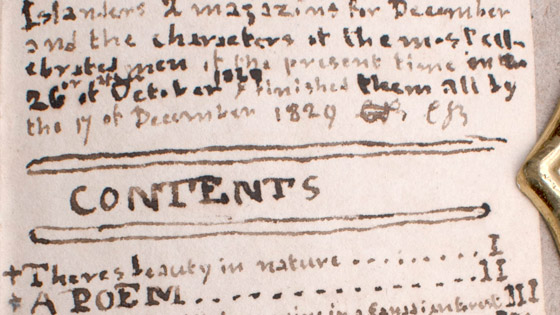 Islanders 2 magazins for December
and the characters of the most cell-
ebrated men of the present time in the
26 of October 1829 I finished them all by
the 17 of December 1829 CB
CONTENTS
+ Theres beauty in nature .......... I
+ A POEM .......... II
in a Canadian forest III